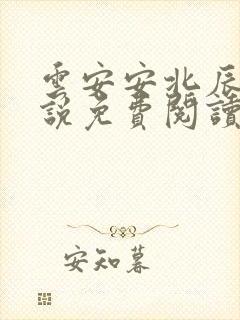 雲安安北辰
說免費閱讀
安知暮